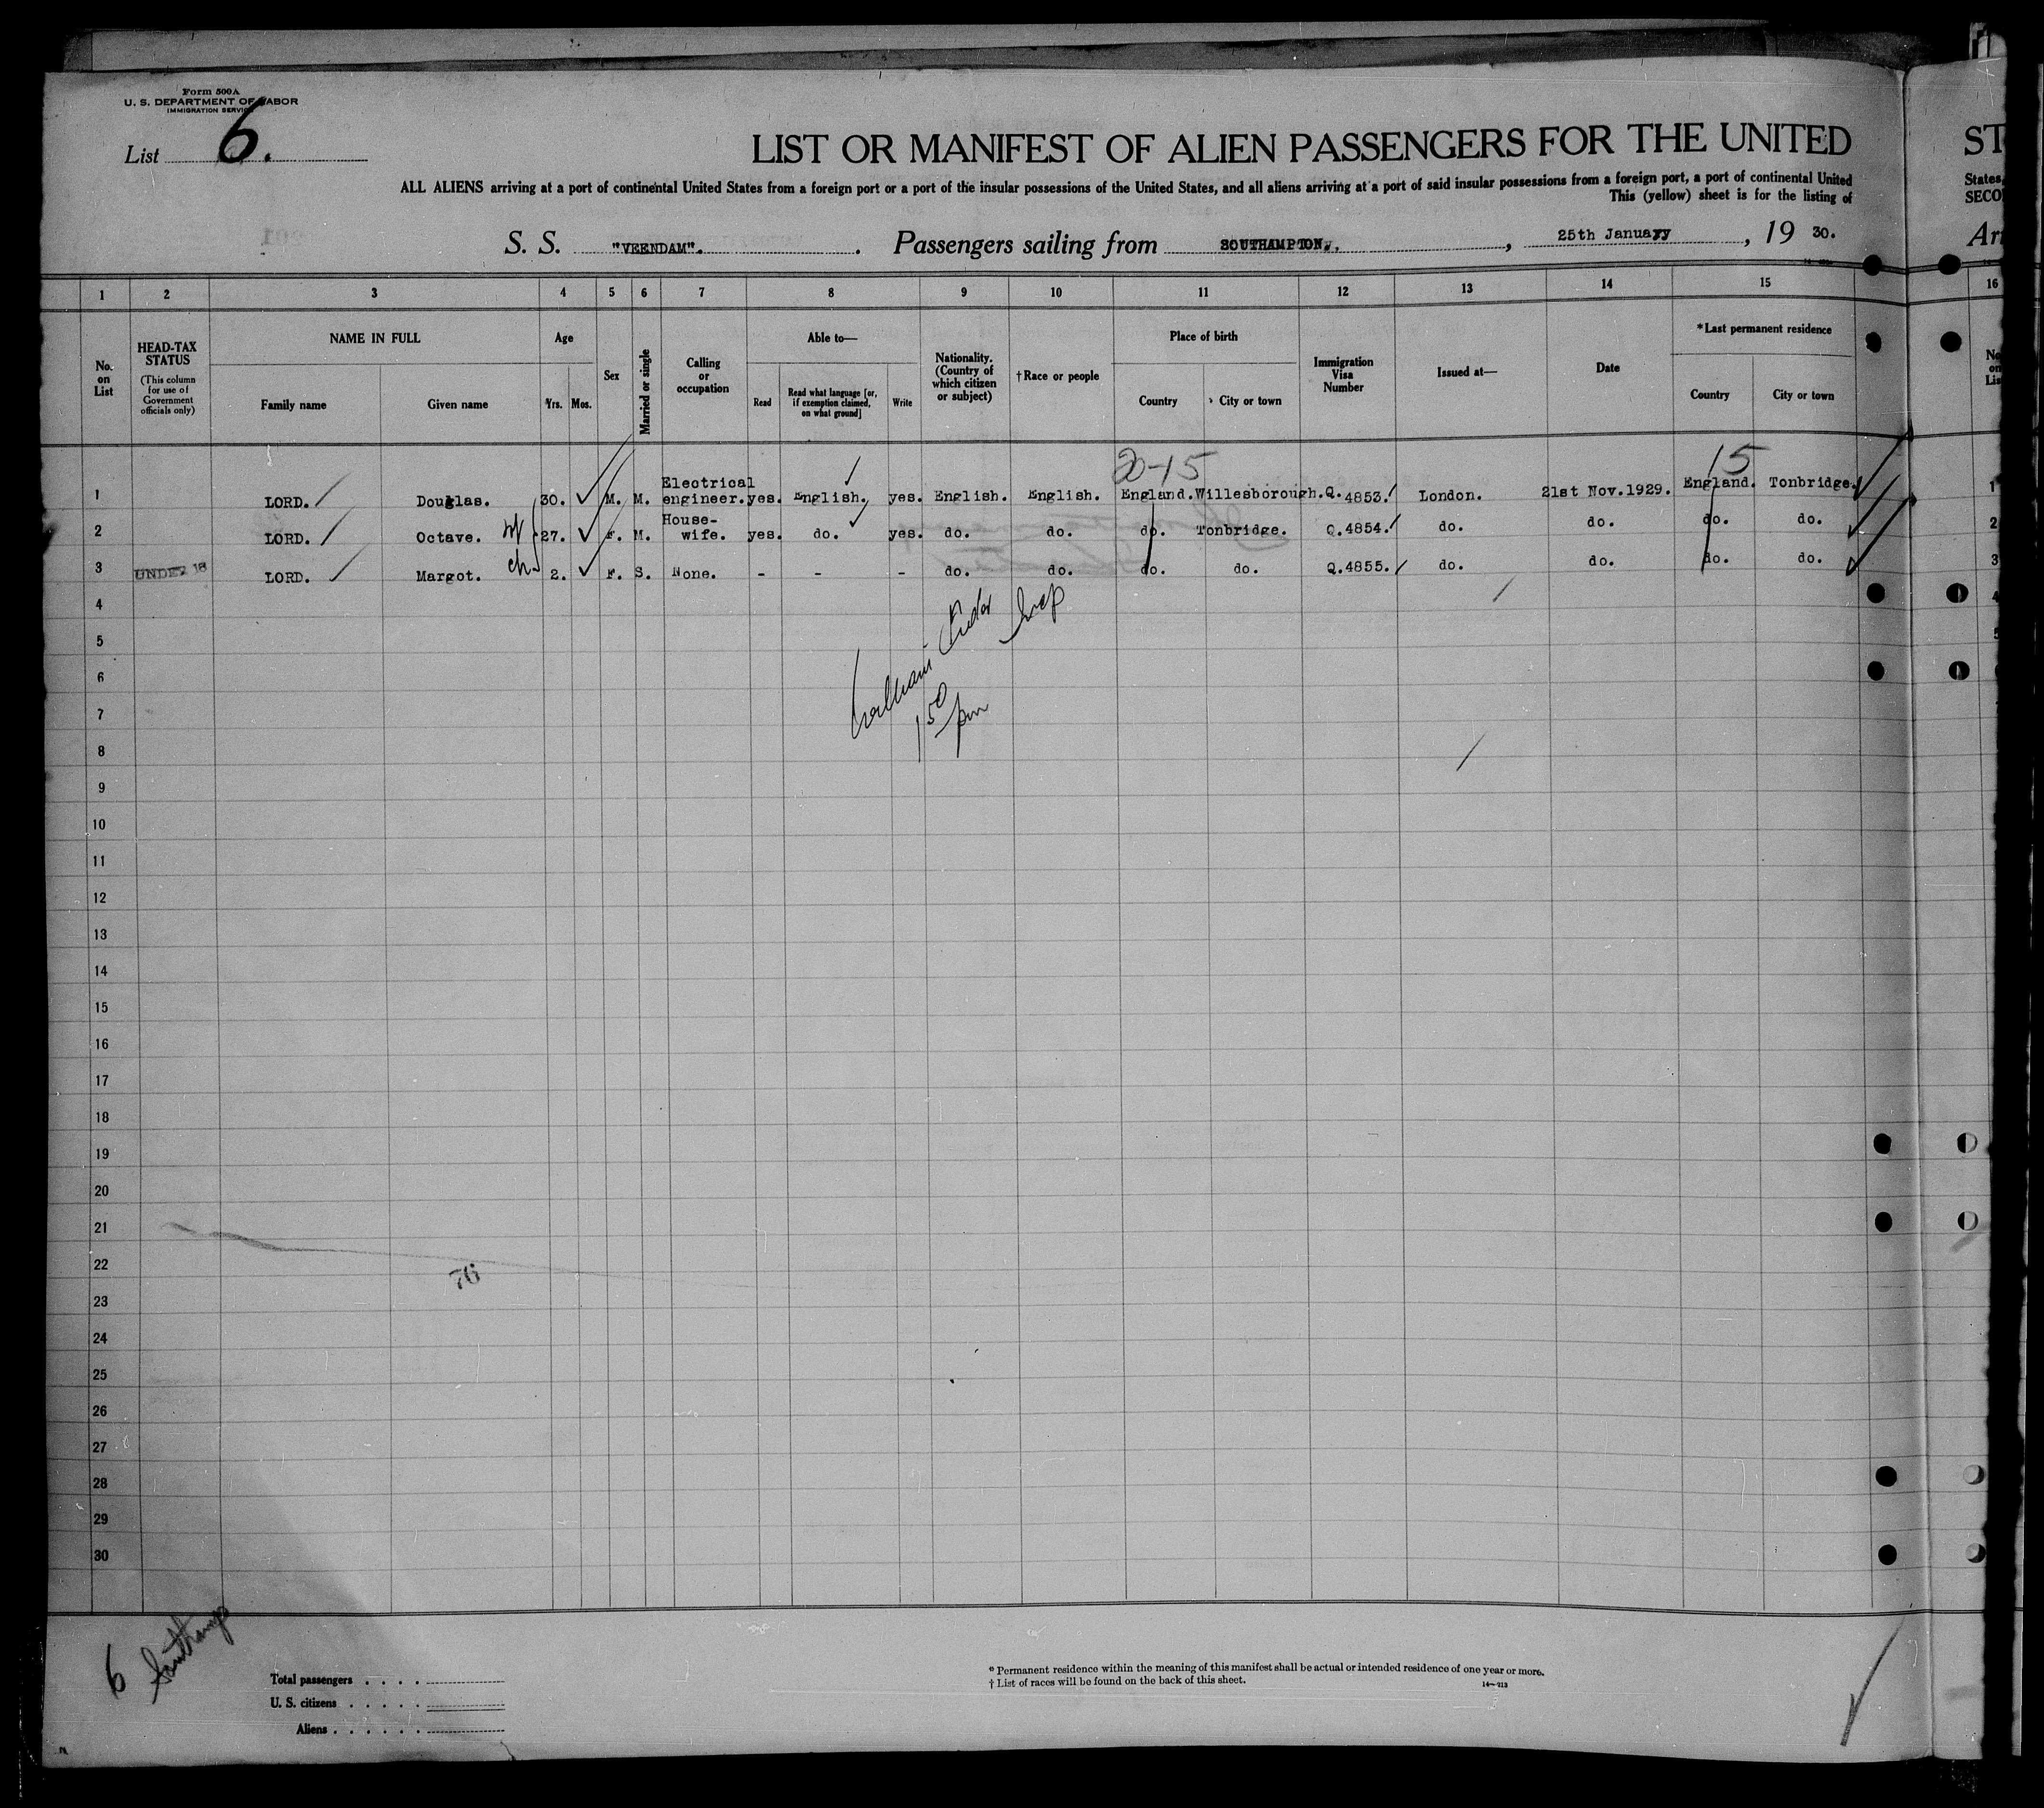 Form 500A
U. S. DEPARTMENT OF LABOR
IMMIGRATION SERVICE
List 6.
LIST OR MANIFEST OF ALIEN PASSENGERS FOR THE UNITED ST
ALL ALIENS arriving at a port of continental United States from a foreign port or a port of the insular possessions of the United States, and all aliens arriving at a port of said insular possessions from a foreign port, a port of continental United States,
This (yellow) sheet is for the listing of SECO
S. S. "VEENDAM". Passengers sailing from SOUTHAMPTON, 25th Januayy, 19 30. Arr
1 2 3 4 5 6 7 8 9 10 11 12 13 14 15 16
No. on List
HEAD-TAX STATUS (This column for use of Government officials only)
NAME IN FULL
Family name Given name
Age Yrs. Mos.
Sex
Married or single
Calling or occupation
Able to—
Read Read what language [or, if exemption claimed, on what ground] Write
Nationality. (Country of which citizen or subject)
†Race or people
Place of birth
Country City or town
Immigration Visa Number
Issued at—
Date
*Last permanent residence
Country City or town
No on Lis
20-15 15
1 LORD. Douglas. 30. M. M. Electrical engineer. yes. English. yes. English. English. England. Willesborough. Q.4853. London. 21st Nov.1929. England. Tonbridge. 1
2 LORD. Octave. wf 27. F. M. House-wife. yes. do. yes. do. do. do. Tonbridge. Q.4854. do. do. do. do. 2
3 UNDER 16 LORD. Margot. ch 2. F. S. None. - - - do. do. do. do. Q.4855. do. do. do. do. 3
4
5
6
7
8
9
10
11
12
13
14
15
16
17
18
19
20
21
22
76
23
24
25
26
27
28
29
30
150 pm
6 Southamp
Total passengers
U. S. citizens
Aliens
* Permanent residence within the meaning of this manifest shall be actual or intended residence of one year or more.
† List of races will be found on the back of this sheet.
14—213